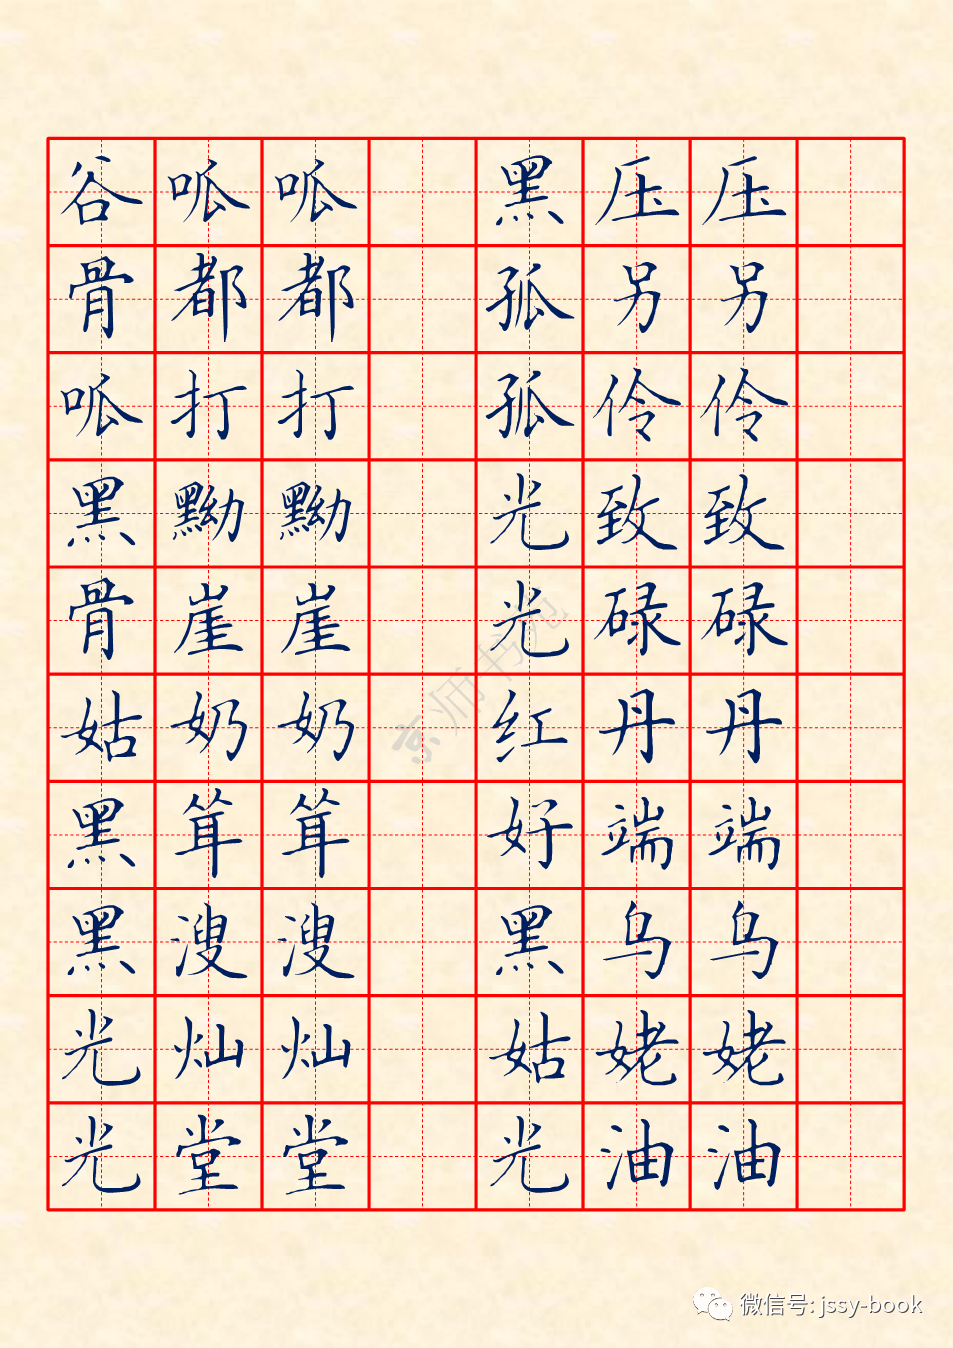 谷呱呱黑压压
骨都都孤另另
呱打打孤伶伶
黑黝黝光致致
骨崖崖光碌碌
姑奶奶红丹丹
黑茸茸好端端
黑溲溲黑乌乌
光灿灿姑姥姥
光堂堂光油油
京师书苑
微信号: jssy-book